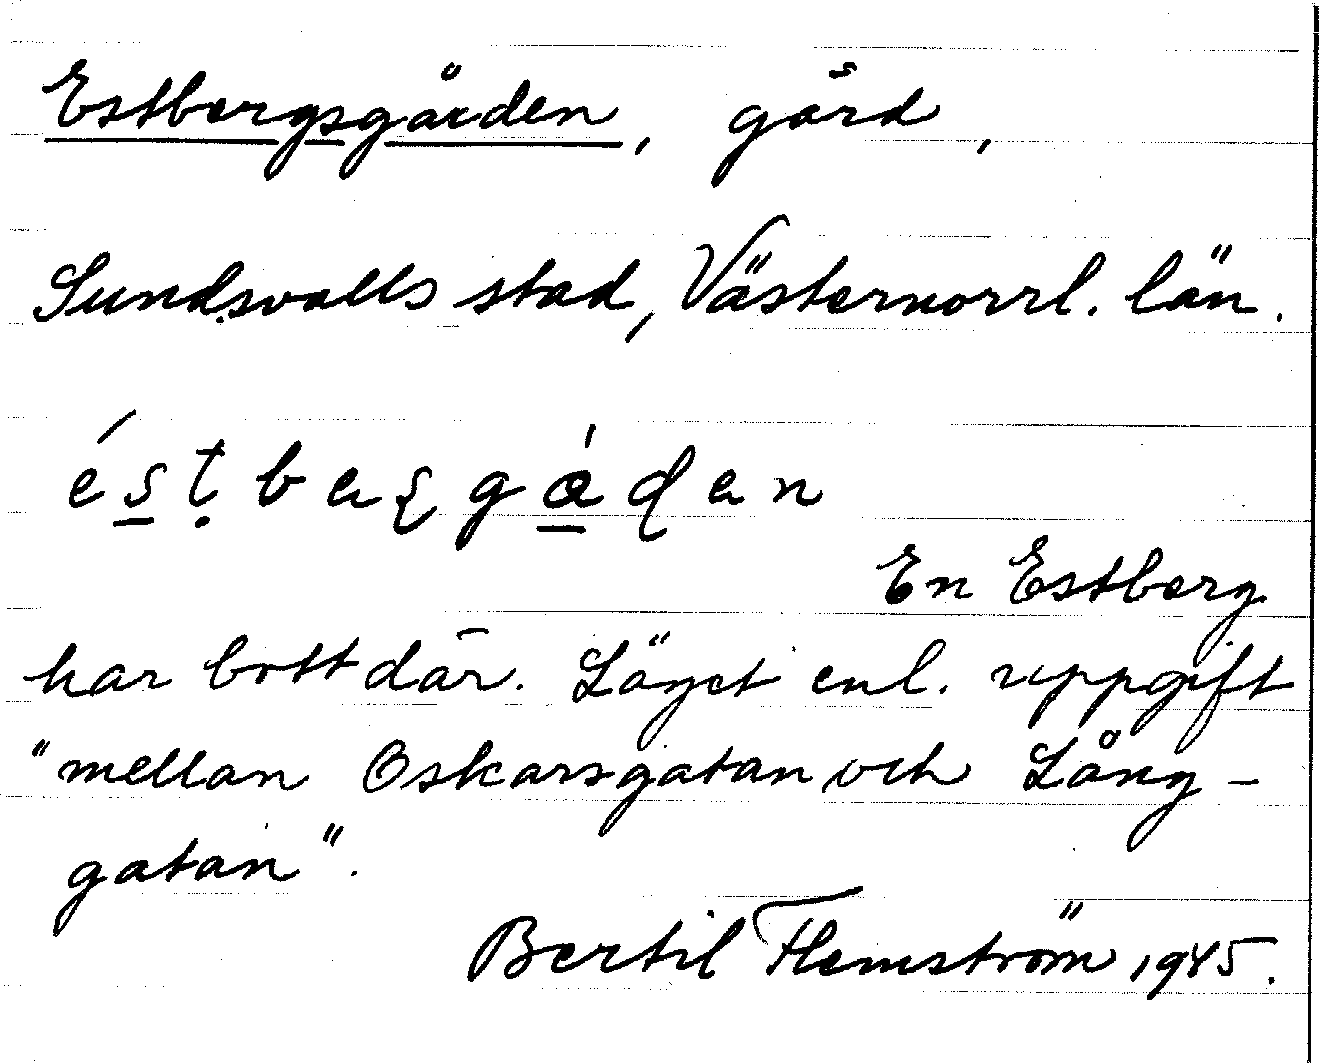 Estbergsgården, gård,
Sundsvalls stad, Västernorrl. län.
éstbeʂgɑ́ɖen
En Estberg
har bott där. Läget enl. uppgift
"mellan Oskarsgatan och Lång-
gatan".
Bertil Flemström 1945.